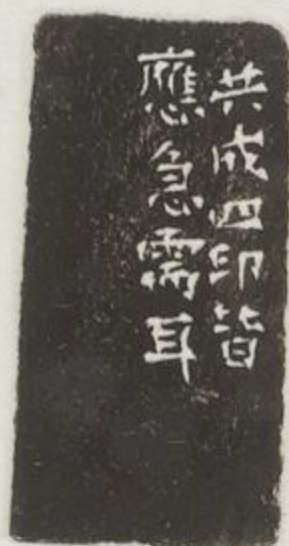 共成四印皆
應急需耳